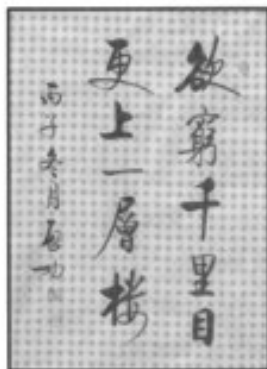 欲窮千里目
更上一層楼
丙子冬月启功